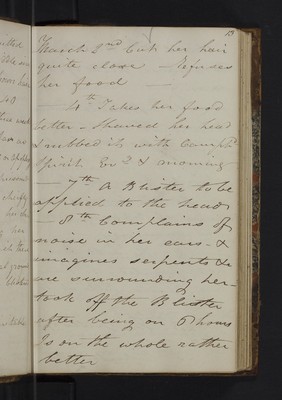 13
March 2nd Cut her hair
quite close – Refuses
her food –
– 4th Takes her food
better – Shaved her head
& rubbed it with Camph
Spirit Evg & morning
– 7th A Blister to be
applied to the head
– 8th Complains of
noise in her ears – &
imagines serpents &c
are surrounding her –
took off the Blister
after being on 6 hours
Is on the whole rather
better